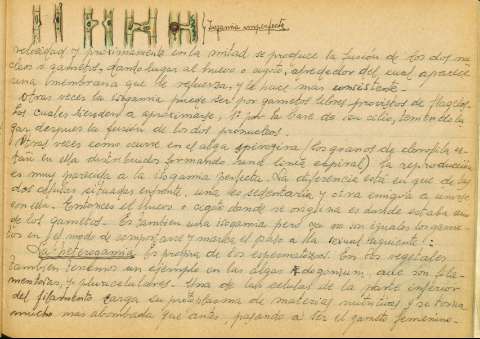 Isogamia imperfecta
velocidad y proximamente en la mitad se produce la fusión de los dos nu
cleos o gametos, dando lugar al huevo o zigoto, alrededor del cual aparece
una membrana que le refuerza, y le hace mas consistente.-
Otras veces la isogamia puede ser por gametos libres provistos de flagelos.
Los cuales tienden a aproximarse, 1º por la base de los cilios, teniendo lu
gar despues la fusión de los dos pronucleos.
Otras veces como ocurre en el alga spirogira (los granos de clorofila es-
tan en ella distribuidos formando una linea espiral) la reproducción
es muy parecida a la isogamia perfecta. La diferencia está en que de las
dos celulas situadas enfrente, una es sedentaria y otra emigra a unirse
con ella. Entonces el huevo o zigoto donde se origina es donde estaba uno
de los gametos.- Es tambien una isogamia pero ya no son iguales los game-
tos en el modo de comportarse y marca el paso a la sexual siguiente:-
La heterogamia es propia de los espermatozoos. En los vegetales
tambien tenemos un ejemplo en las algas Oedogonium, que son fila-
mentosas, y pluricelulares.- Una de las celulas de la parte inferior
del filamento carga su protoplasma de materias nutritivas y se torna
mucho mas abombada que antes, pasando a ser el gameto femenino.-